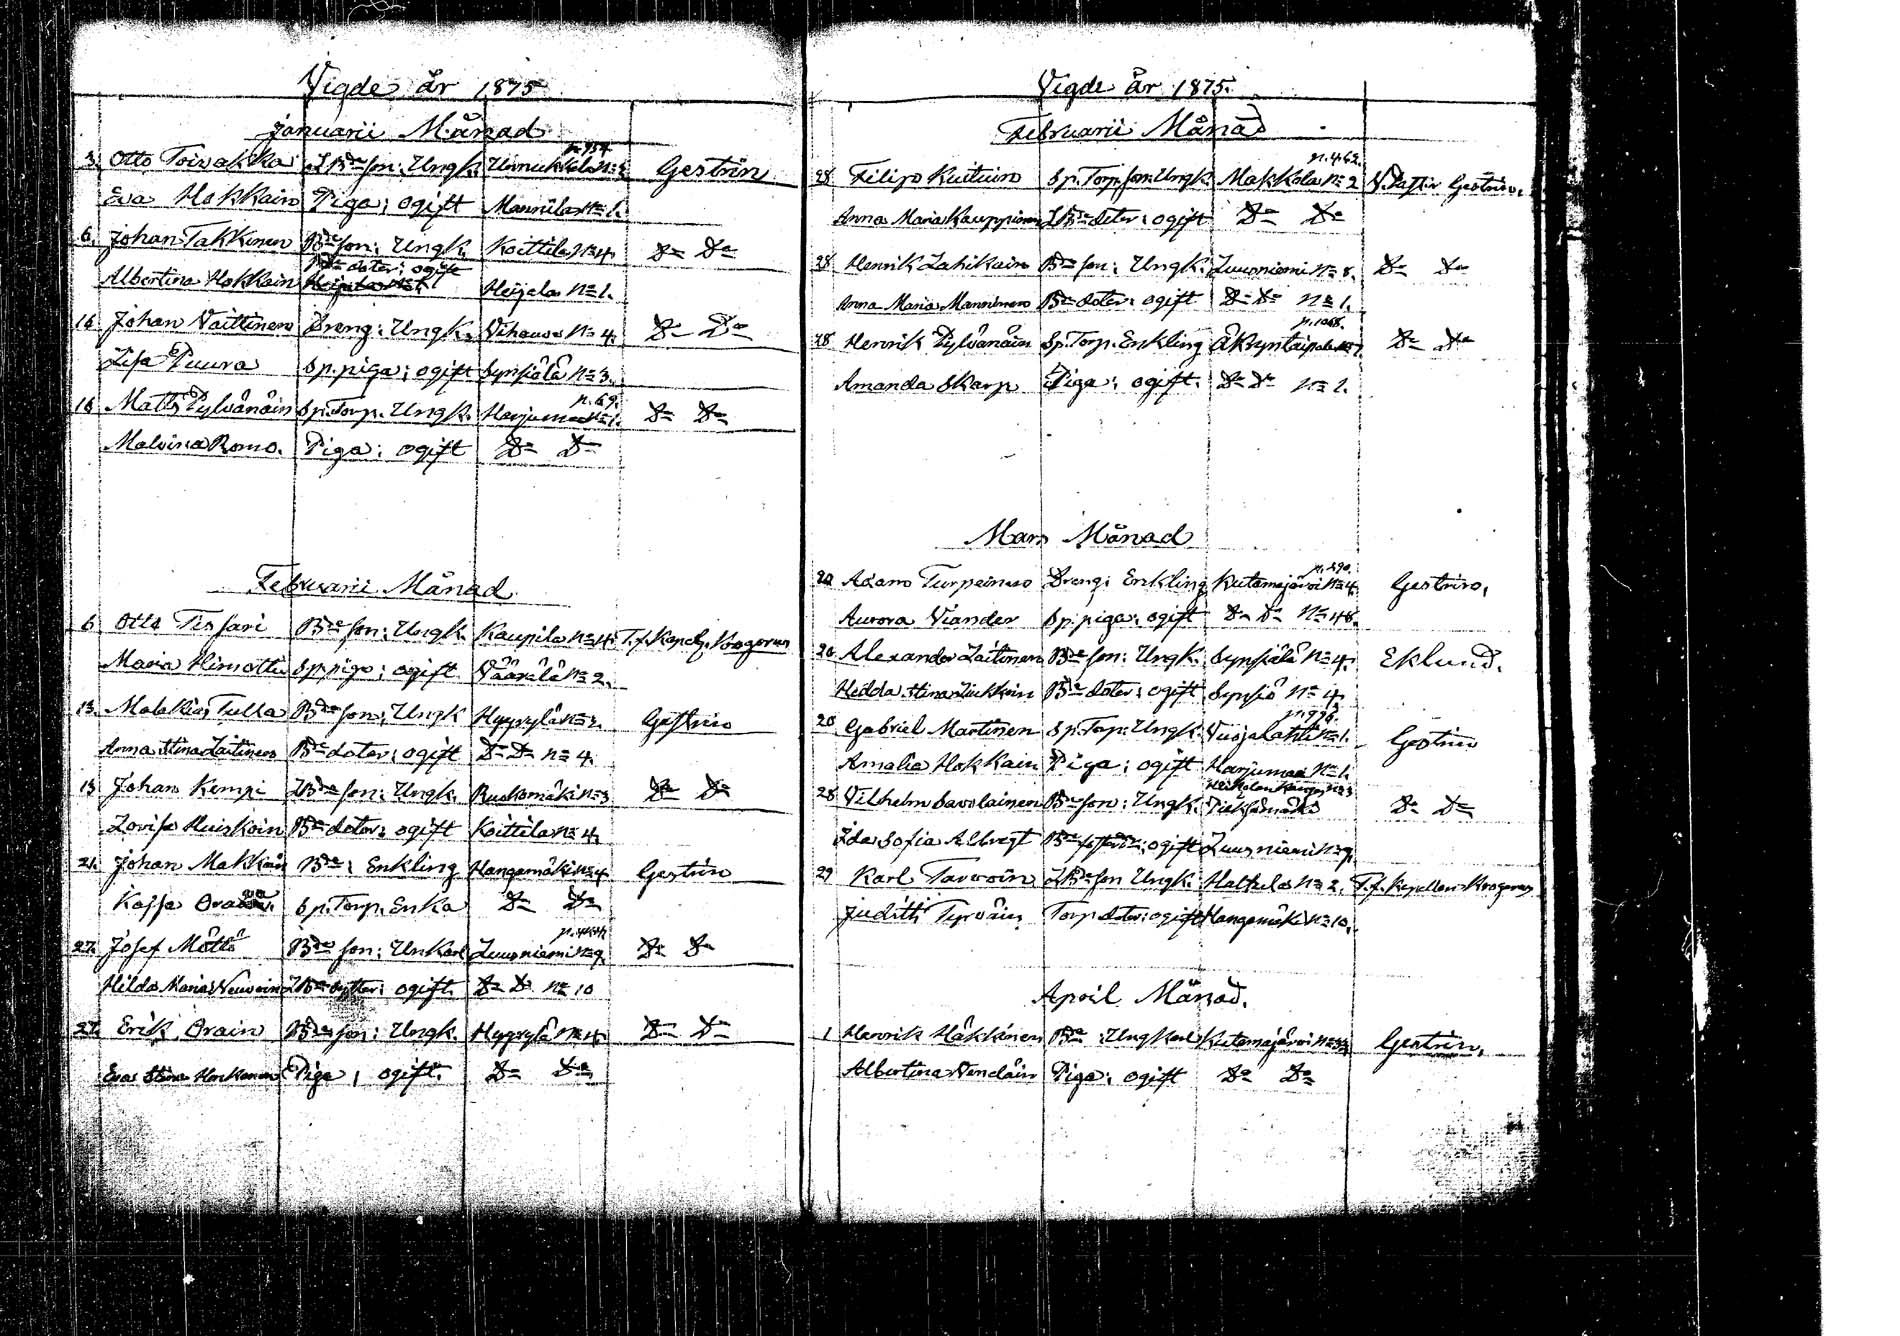 Vigde år 1875
Januarii Månad
p. 954.
3. Otto Toivakka LBde son: Ungk. Unnukkala No 3 Gestrin
Eva Hokkain Piga: ogift Mannila No 1.
6. Johan Takkinen Bde son: Ungk. Koittila No 4. Do Do
Bde doter: ogift
Albertina Hokkain Heijala No 1.
16. Johan Vaittinen Dreng: Ungk. Vihava No 4. Do Do
Lisa Puura Sp. piga: ogift Synsiälä No 3.
p. 69.
16 Matts Pylvänäin Sp. Torp. Ungk. Harjumaa No 1. Do Do
Malvina Romo. Piga: ogift Do Do
Februarii Månad
6 Otto Tissari Bde son: Ungk. Kaupila No 4. T.f. Kapel. Krogerus
Maria Himottu Sp. piga: ogift Väärälä No 2.
13. Malakias Tulla Bde son: Ungk Hyyrylä No 2. Gestrin
Anna Stina Laitinen Bde doter: ogift Do Do No 4.
13 Johan Kempi LBde son: Ungk. Ruokomäki No 3 Do Do
Lovisa Huiskoin Bde doter: ogift Koittila No 4.
21. Johan Makkoin Bde: Enkling Hangamäki No 4 Gestrin
Kajsa Sp. Torp. Enka Do Do
27. Josef Möttö Bde son: Unkarl Luusniemi No 9. Do Do
Hilda Maria Neuvoin LBde dotter: ogift. Do Do No 10
27. Erik Orain Bde son: Ungk. Hyyrylä No 4. Do Do
Eva Stina Honkanen Piga, ogift. Do Do
Vigde år 1875.
Februarii Månad
p. 462.
28 Filip Kuituin Sp. Torp. son: Ungk Makkola No 2 V. Pastor Gestrin.
Anna Maria Kauppinen LBde doter: ogift Do Do
28 Henrik Lahikain Bde son: Ungk. Luusniemi No 8. Do Do
Anna Maria Manninen Bde doter: ogift Do Do No 1.
p. 1068.
28 Henrik Pylvänäin Sp. Torp. Enkling Äkryntaipale No 7. Do Do
Amanda Skarp Piga: ogift. Do Do No 2.
Mars Månad
20 Adam Turpeinen Dreng: Enkling Kutemajärvi No 4. Gestrin.
Aurora Viander Sp. piga: ogift Do Do No 48.
20 Alexander Laitinen Bde son: Ungk. Synsiälä No 4. Eklund.
Hedda Stina Liukkoin Bde doter: ogift Synsiö No 4.
p. 996.
20 Gabriel Martinen Sp. Torp. Ungk. Vuojalahti No 1. Gestrin
Amalia Hokkain Piga: ogift Harjumaa No 1.
28 Vilhelm Savolainen Bde son: Ungk. Pieksämäki Do Do
Ida Sofia Albregt ogift Luusniemi No 9.
29 Karl Tarvoin LBde son Ungk. Halkula No 2. T.f. Kapellan Krogerus
Judith Tyrväin Torp. doter: ogift Hangamäki No 10.
April Månad.
1 Henrik Häkkinen Bde: Ungkarl Kutemajärvi Gestrin.
Albertina Vendäin Piga: ogift Do Do